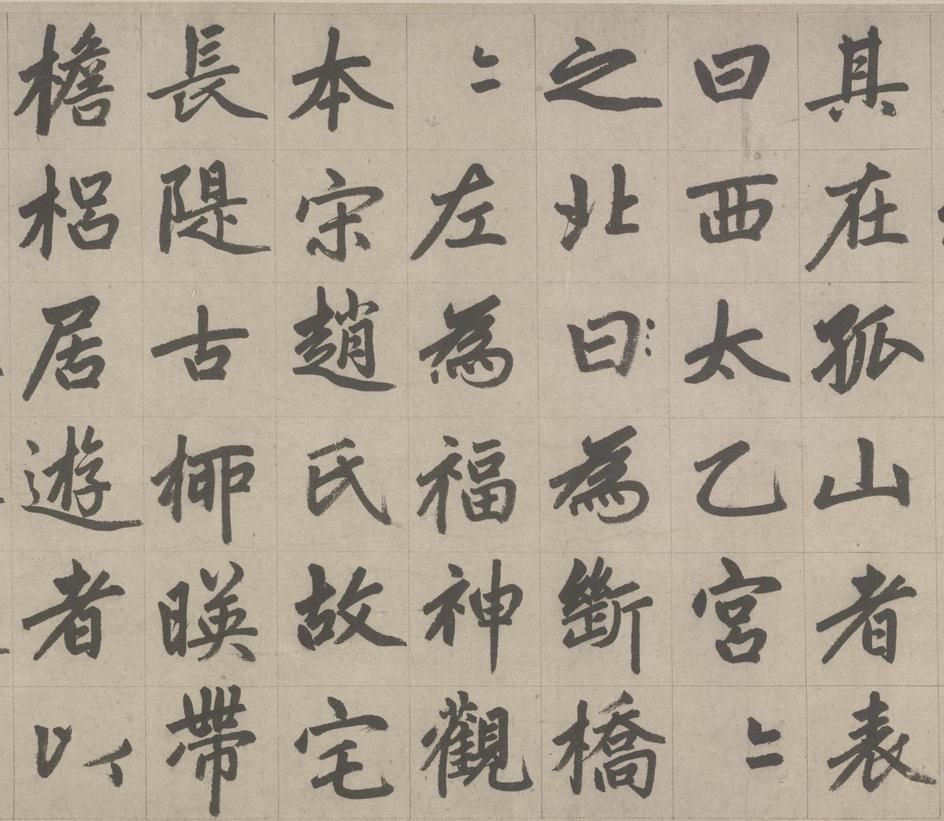 其在孤山者表
曰西太乙宮〻
之北曰為斷橋
〻左為福神觀
本宋趙氏故宅
長隄古柳暎帶
檐梠居遊者以